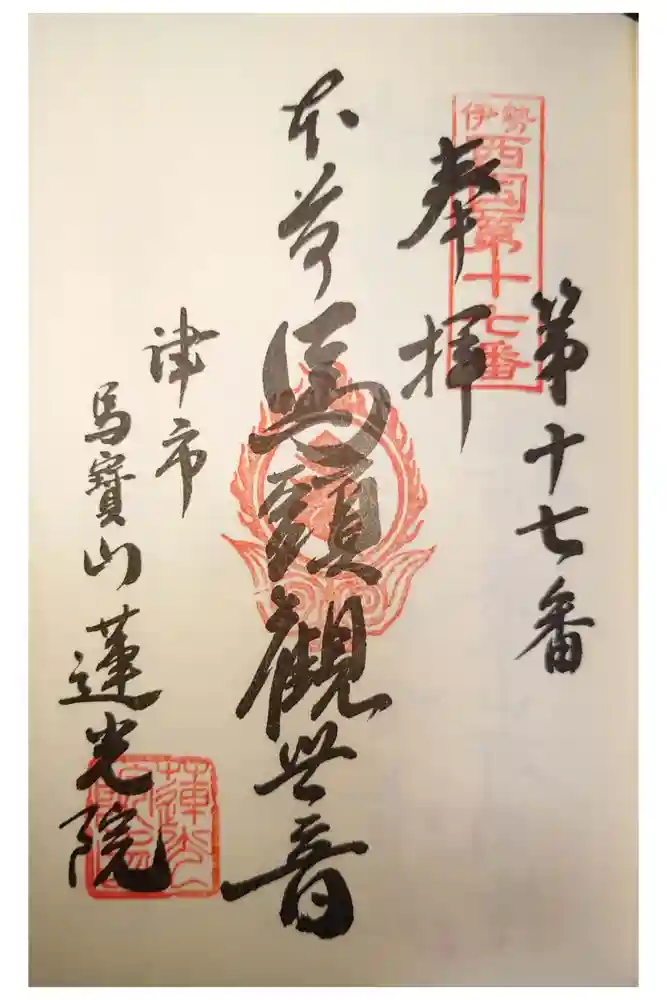 第十七番
伊勢
西国第十七番
奉拝
本尊馬頭観世音
津市
馬寳山蓮光院